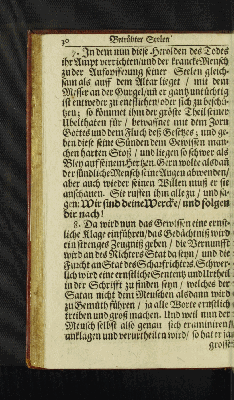 30 Betrübter Seelen
7. In dem nun diese Herolden des Todes
ihr Ampt verrichten/ und der krancke Mensch
zu der Auffopfferung seiner Seelen gleich-
sam als auff dem Altar lieget / mit dem
Messer an der Gurgel/ uñ er gantz untüchtig
ist entweder zu entfliehen/ oder sich zu beschü-
tzen; so kömmet ihm der gröste Theil seiner
Ubelthaten für / bewaffnet mit dem Zorn
Gottes und dem Fluch des Gesetzes; und ge-
ben diese seine Sünden dem Gewissen man-
chen harten Stoß / und liegen so schwer als
Bley auff seinem Hertzen. Gern wolte alsdañ
der sündliche Mensch seine Augen abwenden/
aber auch wieder seinen Willen muß er sie
anschauen. Sie ruffen ihm alle zu / und sa-
gen: Wir sind deine Wercke/ und folgen
dir nach!
8. Da wird nun das Gewissen eine ernst-
liche Klage einführen/ das Gedächtniß wird
ein strenges Zeugniß geben / die Vernunfft
wird an des Richters Stat da seyn / und die
Furcht an Stat des Scharfrichters. Schwer-
lich wird eine ernstliche Sententz und Urtheil
in der Schrifft zu finden seyn / welches der
Satan nicht dem Menschen alsdann wird
zu Gemüth führen / ja alle Worte ernstlich
treiben und groß machen. Und weil nun der
Mensch selbst also genau sich examiniren/
anklagen und verurtheilen wird/ so hat er ja
grosse